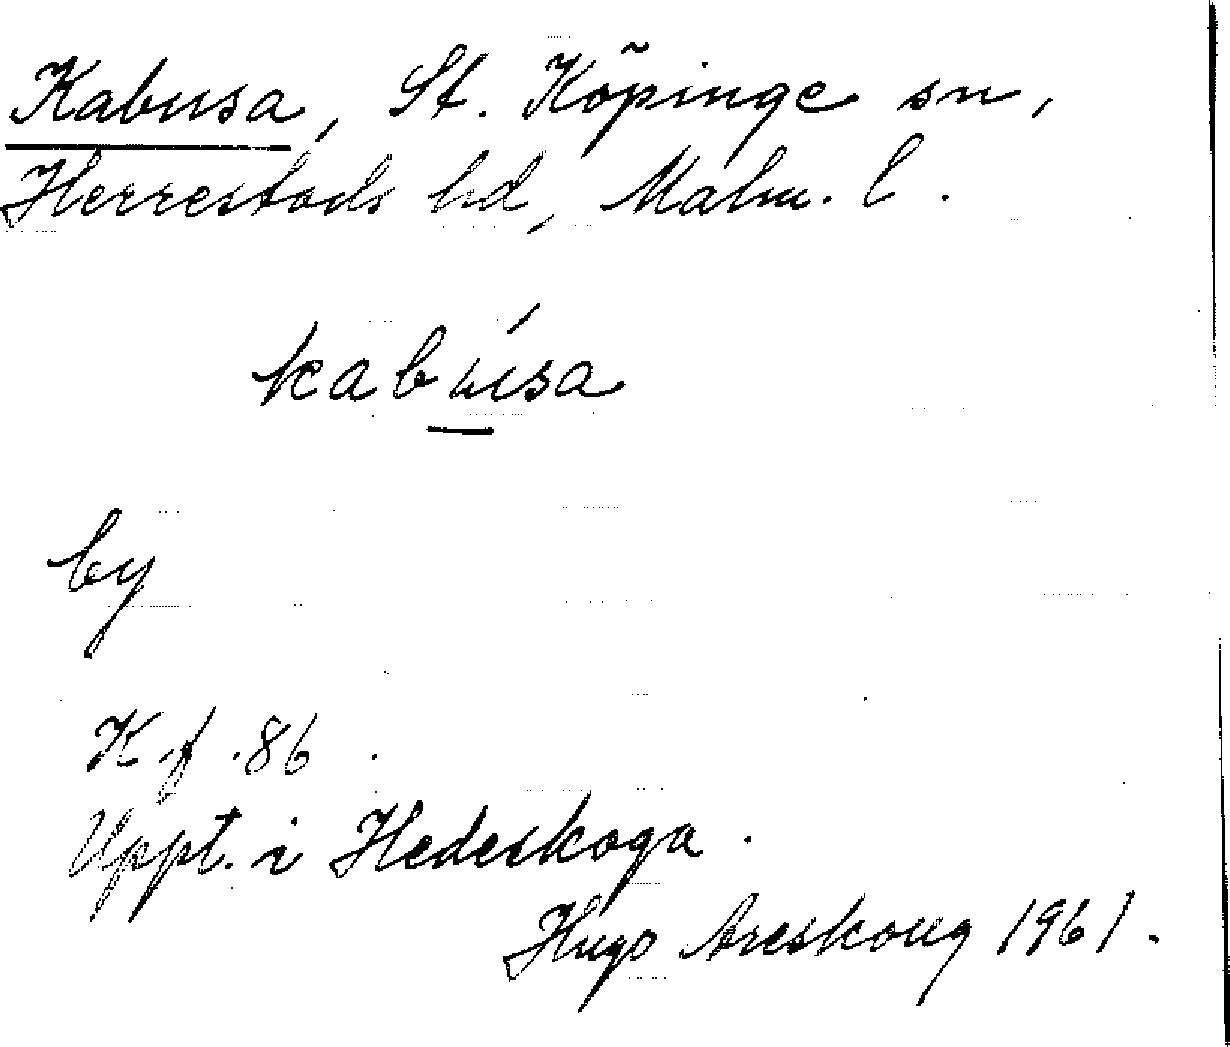 Kabusa, St. Köpinge sn,
Herrestads hd, Malm. l.
kabúsa
by
K f. 86.
Uppt. i Hedeskoga.
Hugo Areskoug 1961.